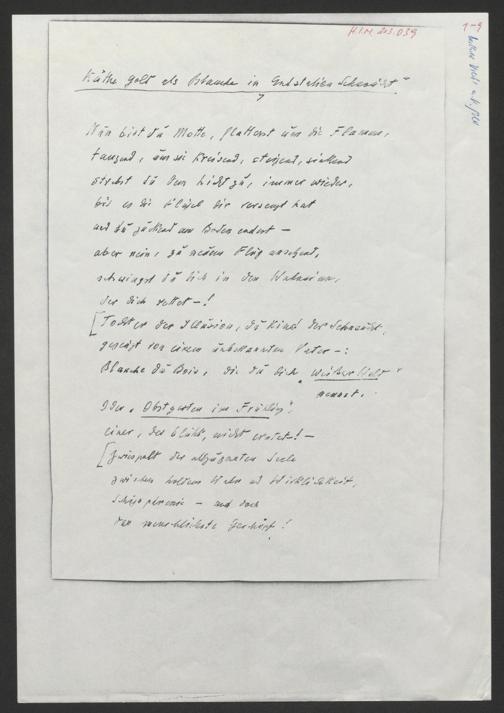 H.I.N. 203.039
Käthe Gold als Blanche in „Endstation Sehnsucht"
Nun bist du Motte, flatterst um die Flamme,
tanzend, um sie kreisend, steigend, sinkend
strebst du dem Licht zu, immer wieder,
bis es die Flügel dir versengt hat
und du zuckend am Boden endest —
aber nein, zu neuem Flug ansetzend,
schwingst du dich in den Wahnsinn,
der dich rettet —!
[Tochter der Illusion, du Kind der Sehnsucht,
gezeugt von einem unbekannten Vater —:
Blanche Du Bois, die du dich „weißer Wald"
nennst.
Oder „Obstgarten im Frühling",
einer, der blüht, nicht erntet —! —
[Zwiespalt der allzuzarten Seele
zwischen holdem Wahn und Wirklichkeit,
Schizophrenie — und doch
das menschlichste Geschöpf!